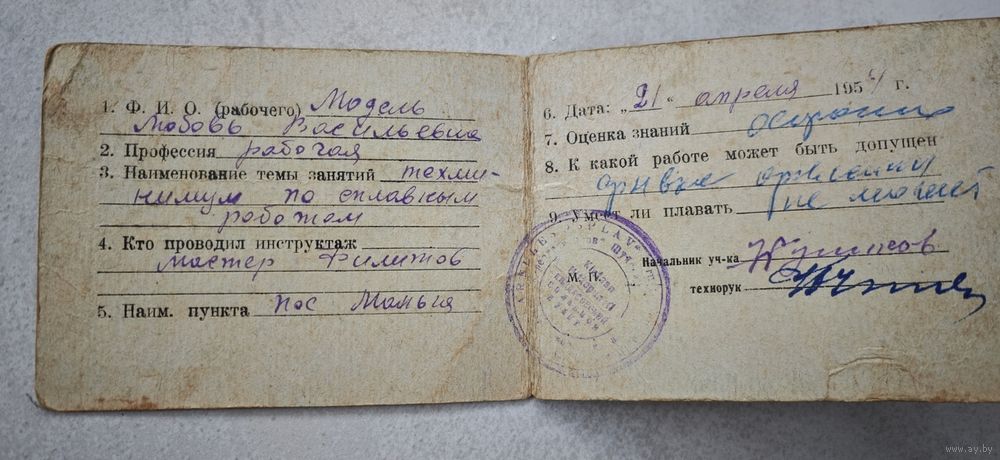 1. Ф. И. О. (рабочего) Модель
Любовь Васильевна
2. Профессия рабочая
3. Наименование темы занятий техми-
нимум по сплавным
работам
4. Кто проводил инструктаж
мастер Филипов
5. Наим. пункта пос Маньга
6. Дата: „21“ апреля 1954 г.
7. Оценка знаний
8. К какой работе может быть допущен
9. Умеет ли плавать не может
М. П.
Начальник уч-ка
технорук
www.ay.by